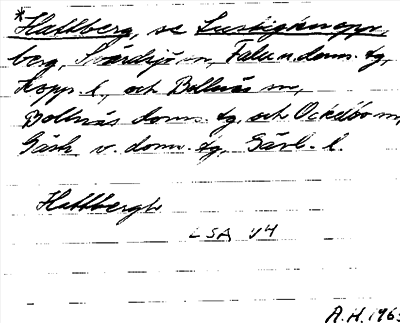 *Hattberg, se Lustigknopp-
berg, Svärdsjö sn, Falu n. doms. tg,
Kopp. l., och Bollnäs sn,
Bollnäs doms. tg, och Ockelbo sn,
Gästr. v. doms. tg, Gävl. l.
Hattbergb
LSA V4
A.H. 196